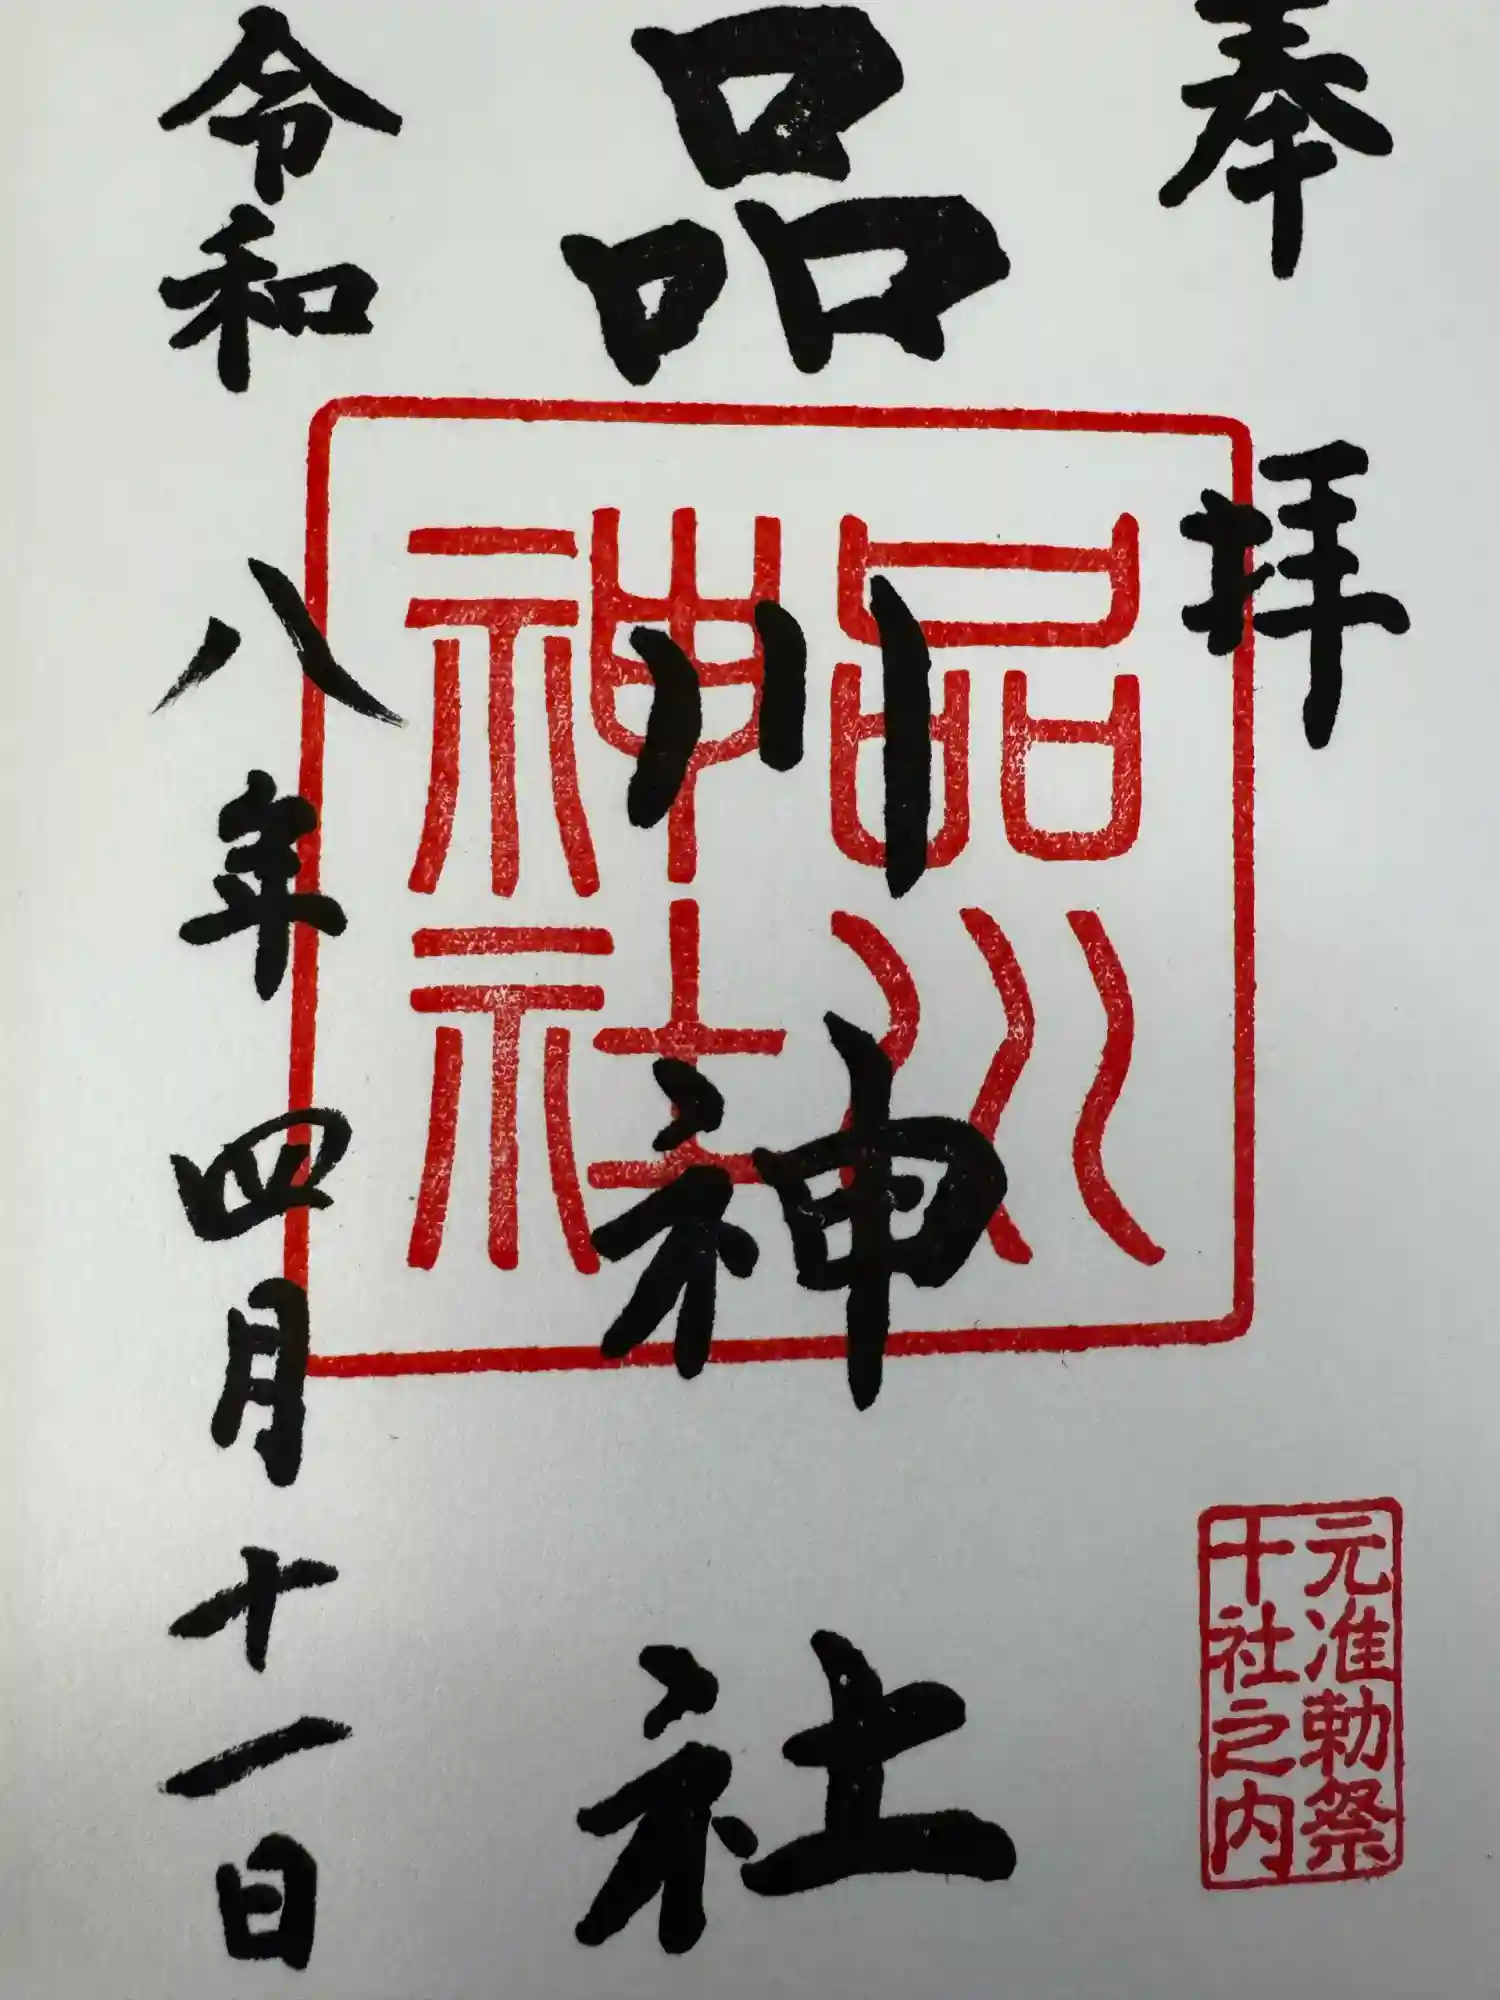 奉拝
品川神社
令和八年四月十一日
品川
神社
元准勅祭
十社之内